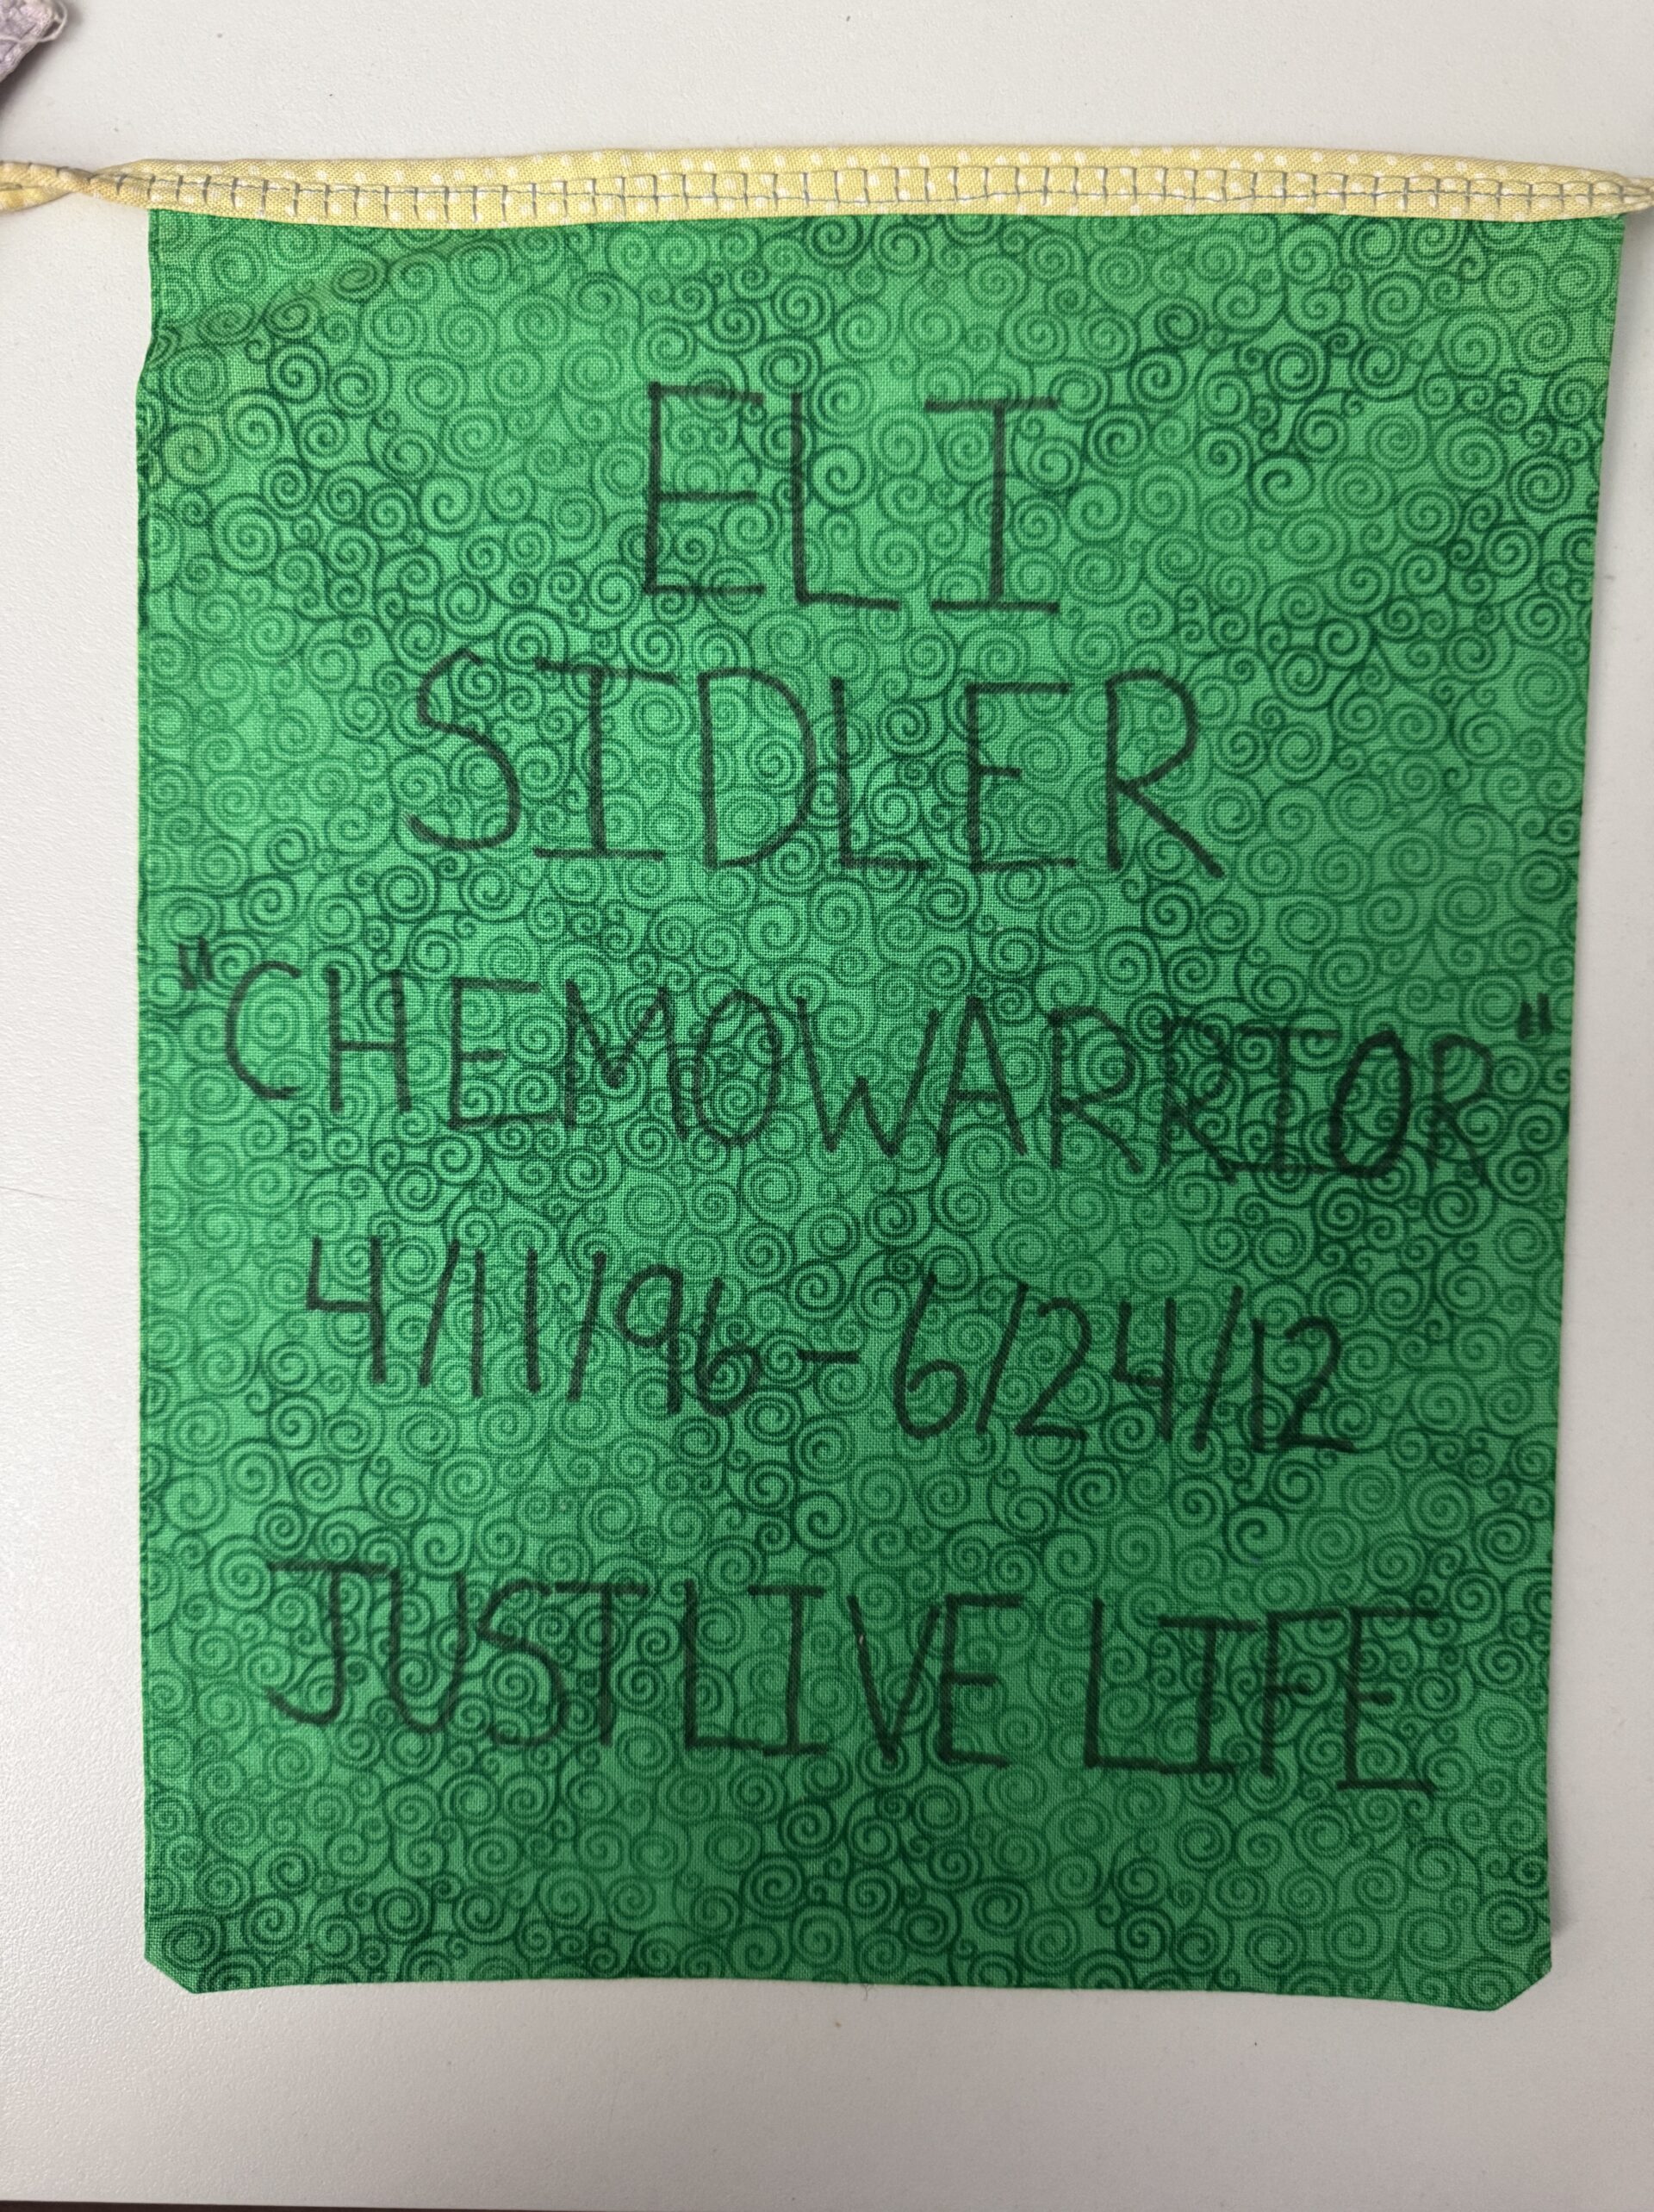 ELI
SIDLER
"CHEMOWARRIOR"
4/11/96-6/24/12
JUST LIVE LIFE